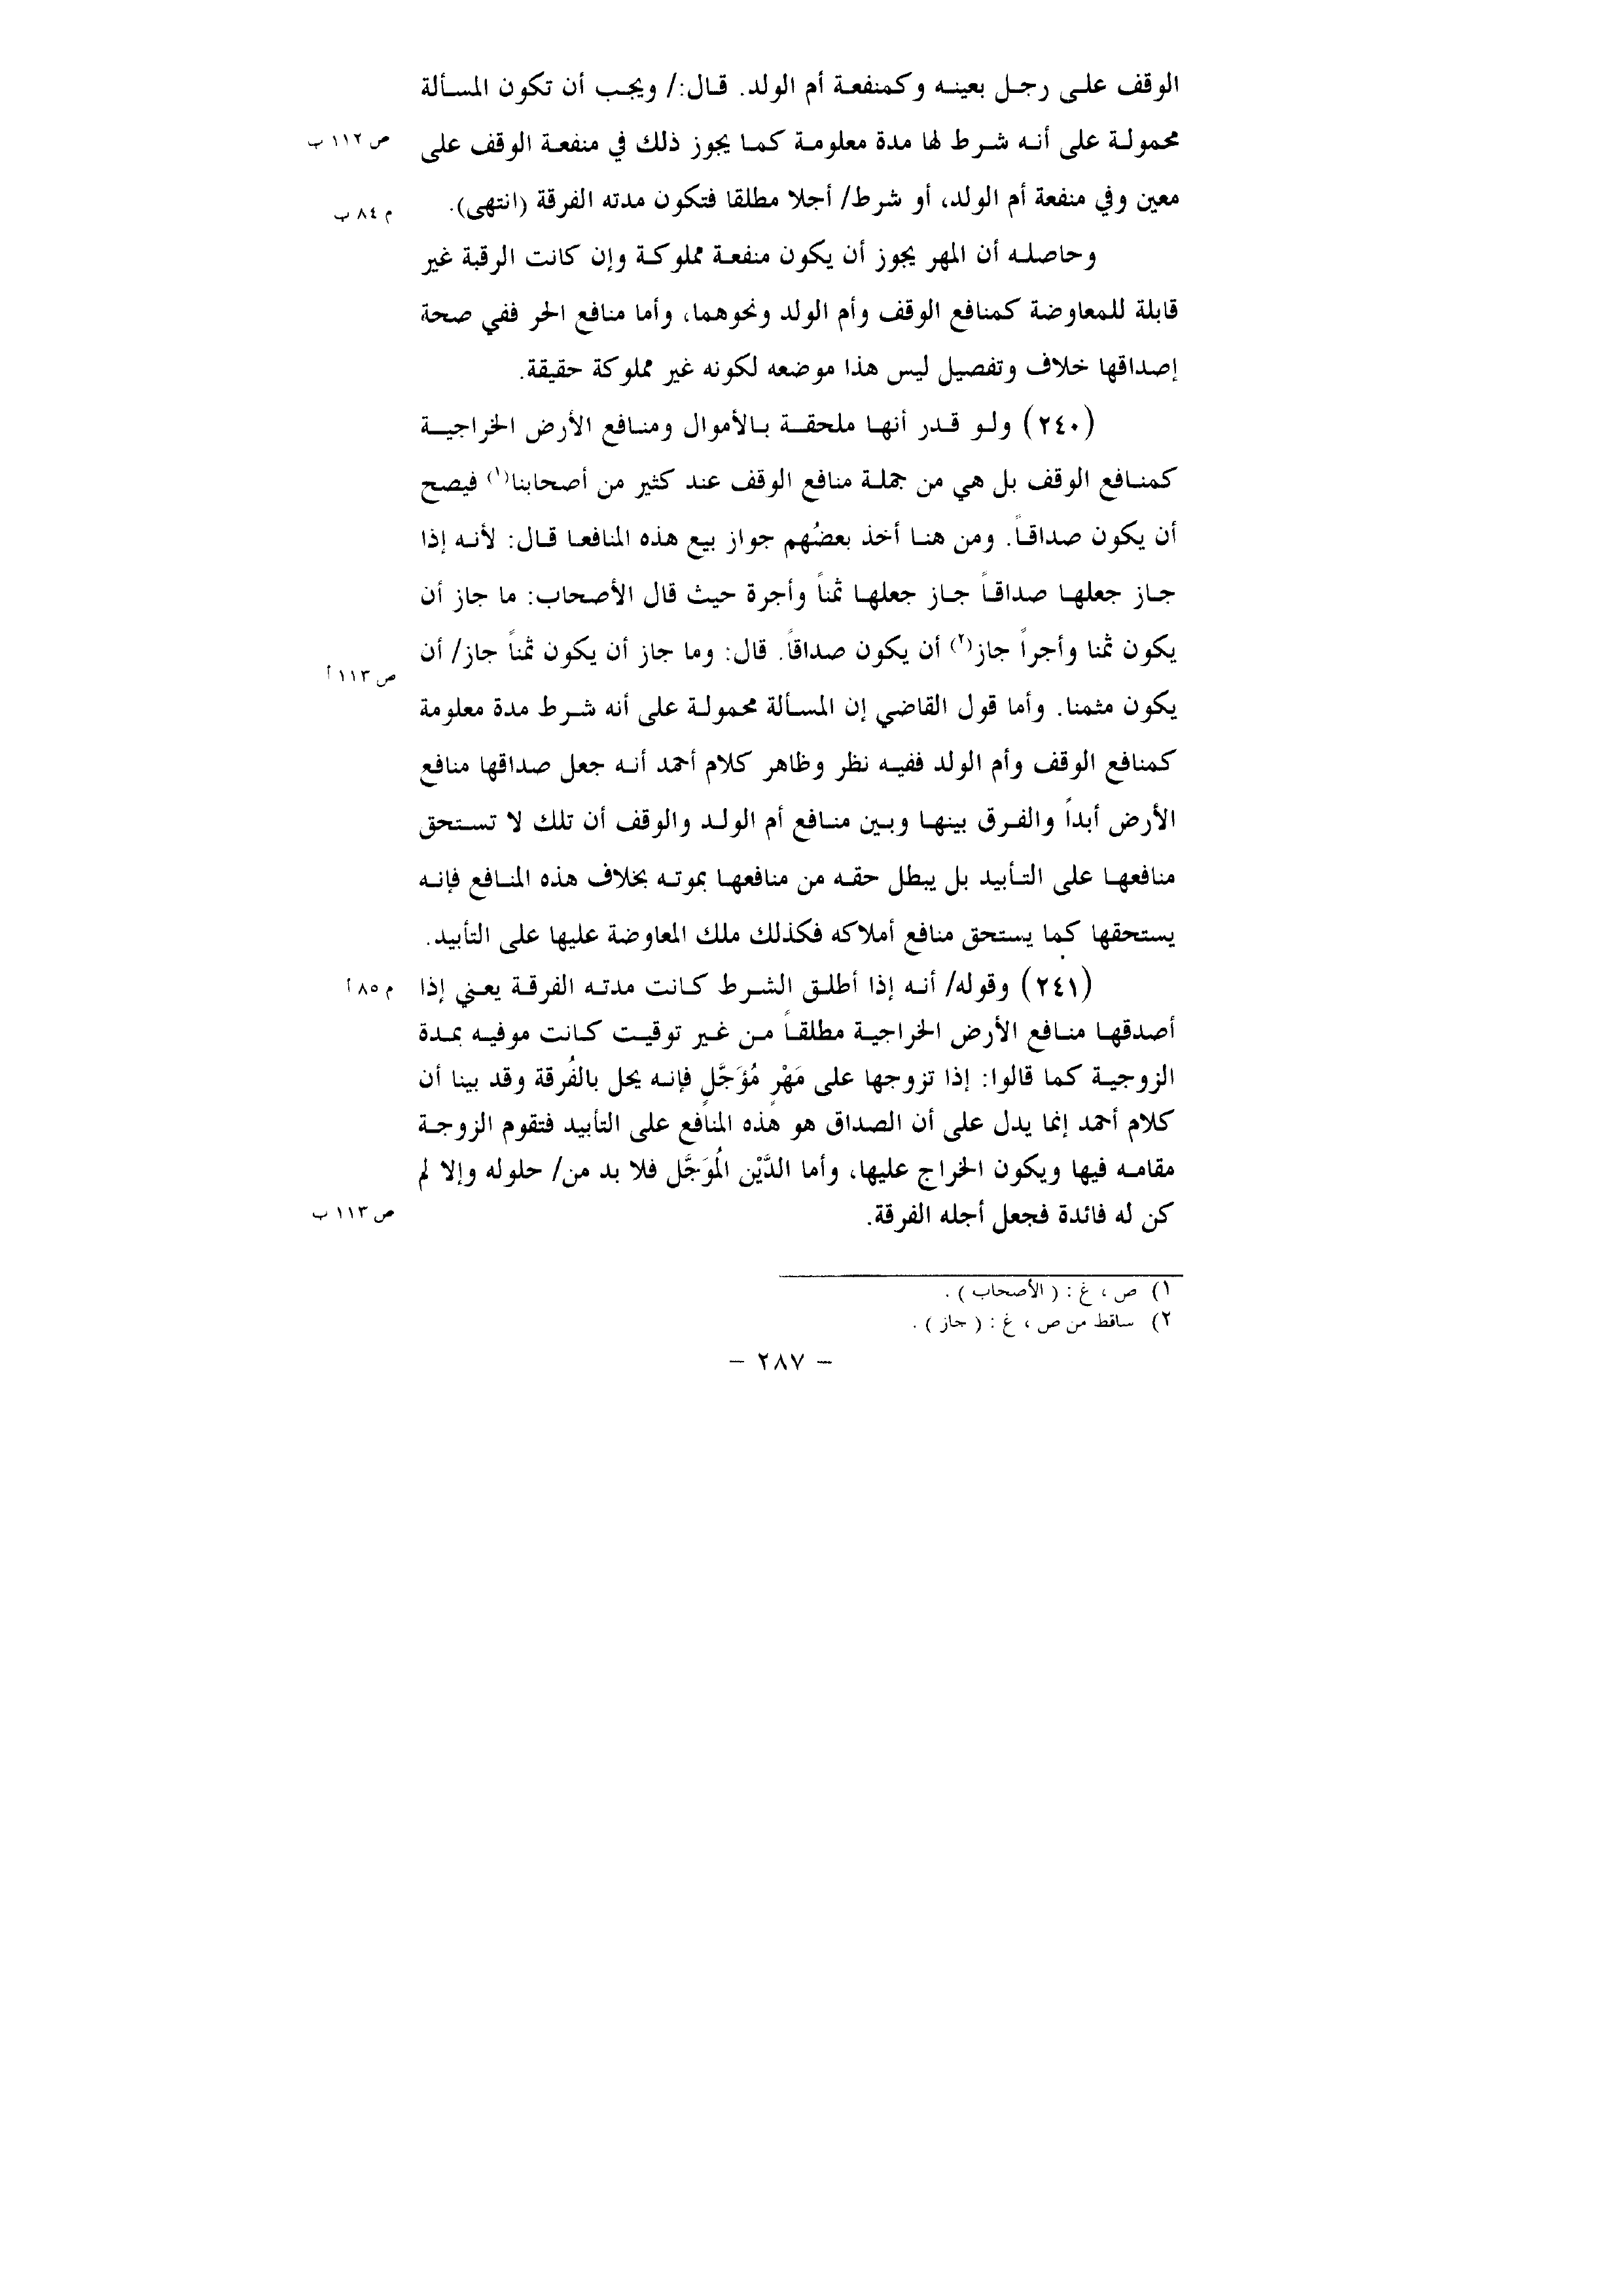 الوقف على رجل بعينه وكمنفعة أم الولد. قال:/ ويجب أن تكون المسألة
ص ١١٢ ب
محمولة على أنه شرط لها مدة معلومة كما يجوز ذلك في منفعة الوقف على
معين وفي منفعة أم الولد، أو شرط/ أجلا مطلقا فتكون مدته الفرقة (انتهى).
م ٨٤ ب
وحاصله أن المهر يجوز أن يكون منفعة مملوكة وإن كانت الرقبة غير
قابلة للمعاوضة كمنافع الوقف وأم الولد ونحوهما، وأما منافع الحر ففي صحة
إصداقها خلاف وتفصيل ليس هذا موضعه لكونه غير مملوكة حقيقة.
(٢٤٠) ولو قدر أنها ملحقة بالأموال ومنافع الأرض الخراجية
كمنافع الوقف بل هي من جملة منافع الوقف عند كثير من أصحابنا(١) فيصح
أن يكون صداقاً. ومن هنا أخذ بعضُهم جواز بيع هذه المنافعا قال: لأنه إذا
جاز جعلها صداقاً جاز جعلها ثمناً وأجرة حيث قال الأصحاب: ما جاز أن
يكون ثمنا وأجراً جاز(٢) أن يكون صداقاً. قال: وما جاز أن يكون ثمناً جاز/ أن
ص ١١٣ أ
يكون مثمنا. وأما قول القاضي إن المسألة محمولة على أنه شرط مدة معلومة
كمنافع الوقف وأم الولد ففيه نظر وظاهر كلام أحمد أنه جعل صداقها منافع
الأرض أبداً والفرق بينها وبين منافع أم الولد والوقف أن تلك لا تستحق
منافعها على التأبيد بل يبطل حقه من منافعها بموته بخلاف هذه المنافع فإنه
يستحقها كما يستحق منافع أملاكه فكذلك ملك المعاوضة عليها على التأبيد.
(٢٤١) وقوله/ أنه إذا أطلق الشرط كانت مدته الفرقة يعني إذا
م ٨٥ أ
أصدقها منافع الأرض الخراجية مطلقاً من غير توقيت كانت موفيه بمدة
الزوجية كما قالوا: إذا تزوجها على مَهْرٍ مُؤَجَّلٍ فإنه يحل بالفُرقة وقد بينا أن
كلام أحمد إنما يدل على أن الصداق هو هذه المنافع على التأبيد فتقوم الزوجة
مقامه فيها ويكون الخراج عليها، وأما الدَّيْن المُوَجَّل فلا بد من/ حلوله وإلا لم
كن له فائدة فجعل أجله الفرقة.
ص ١١٣ ب
١) ص ، غ : ( الأصحاب ) .
٢) ساقط من ص ، غ : ( جاز ) .
– ٢٨٧ –